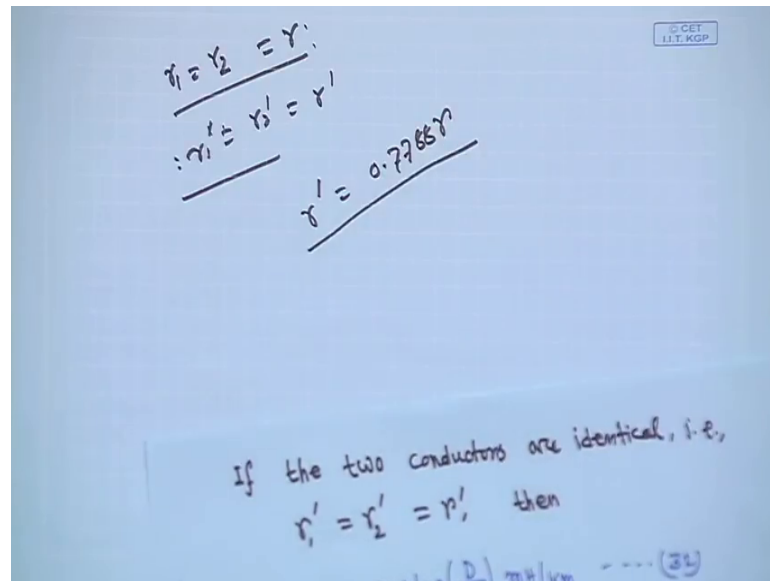 © CET
I.I.T. KGP
r₁ = r₂ = r.
∴ r₁' = r₂' = r'
r' = 0.7788r
If the two conductors are identical, i.e.,
r₁' = r₂' = r', then
mH/km ----(31)